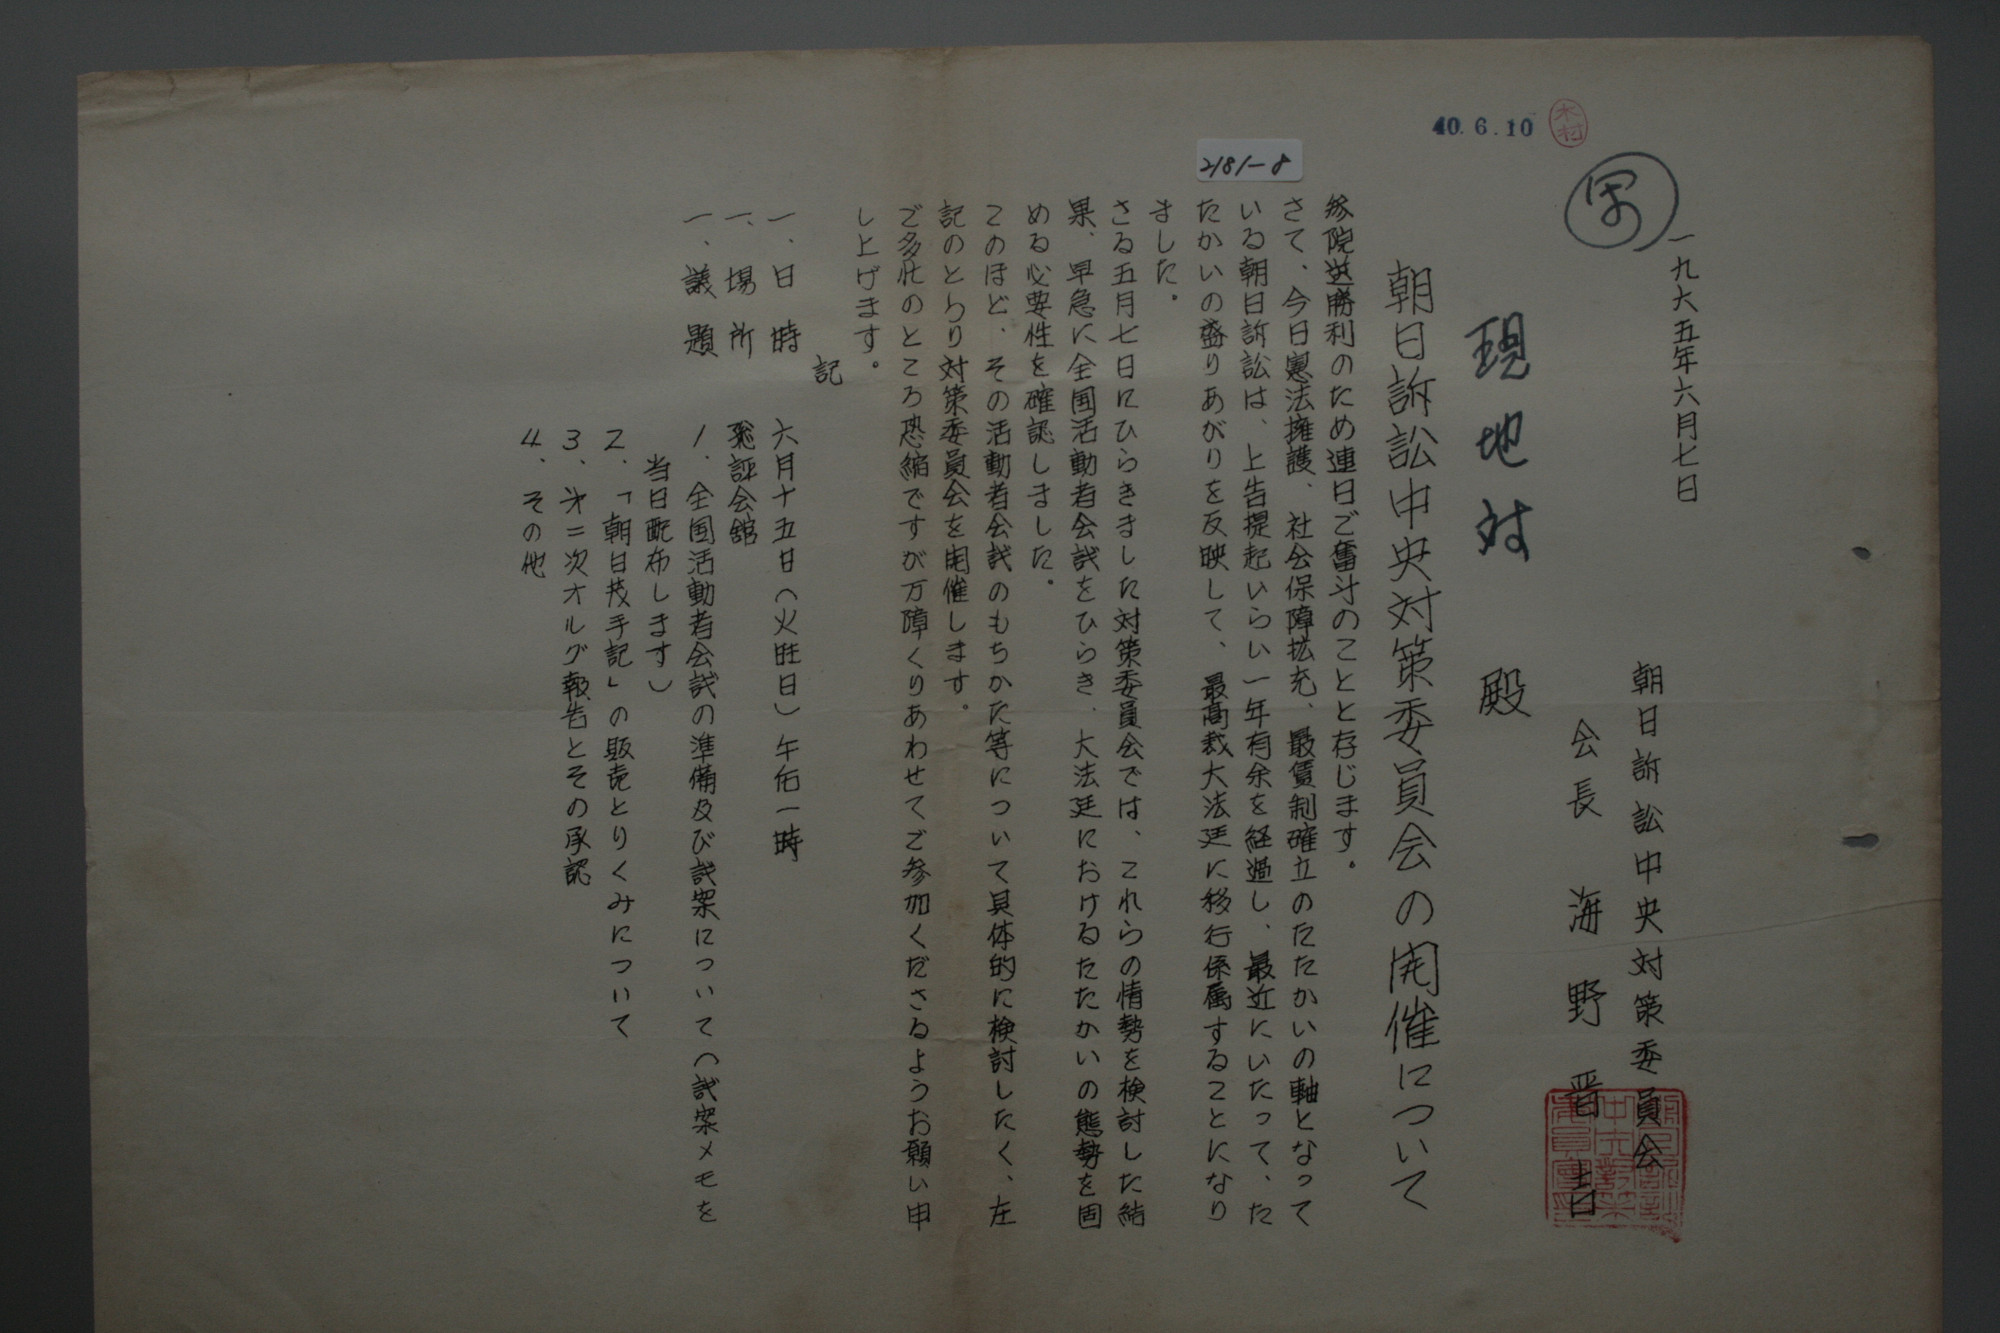 40.6.10
木村
2181-8
写
一九六五年六月七日
朝日訴訟中央対策委員会
会長 海野晋吉
現地対 殿
朝日訴訟中央対策委員会の開催について
参院選勝利のため連日ご奮斗のことと存じます。
さて、今日憲法擁護、社会保障拡充、最賃制確立のたたかいの軸となって
いる朝日訴訟は、上告提起いらい一年有余を経過し、最近にいたって、た
たかいの盛りあがりを反映して、最高裁大法廷に移行係属することになり
ました。
さる五月七日にひらきました対策委員会では、これらの情勢を検討した結
果、早急に全国活動者会議をひらき、大法廷におけるたたかいの態勢を固
める必要性を確認しました。
このほど、その活動者会議のもちかた等について具体的に検討したく、左
記のとおり対策委員会を開催します。
ご多忙のところ恐縮ですが万障くりあわせてご参加くださるようお願い申
し上げます。
記
一、日時 六月十五日(火旺日)午后一時
一、場所 総評会館
一、議題 1.全国活動者会議の準備及び試案について(試案メモを
当日配布します)
2、「朝日茂手記」の販売とりくみについて
3、才二次オルグ報告とその承認
4、その他